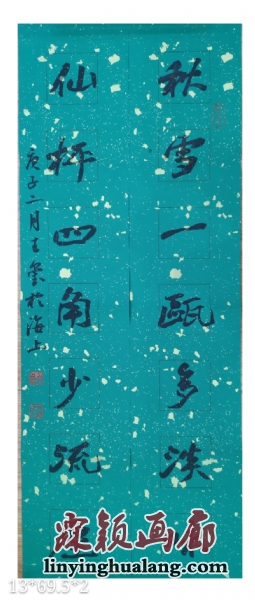 秋雪一甌多淡
仙枰四角少流
庚子二月於海上
颖画廊
linyinghualang.com
13*69.5*2